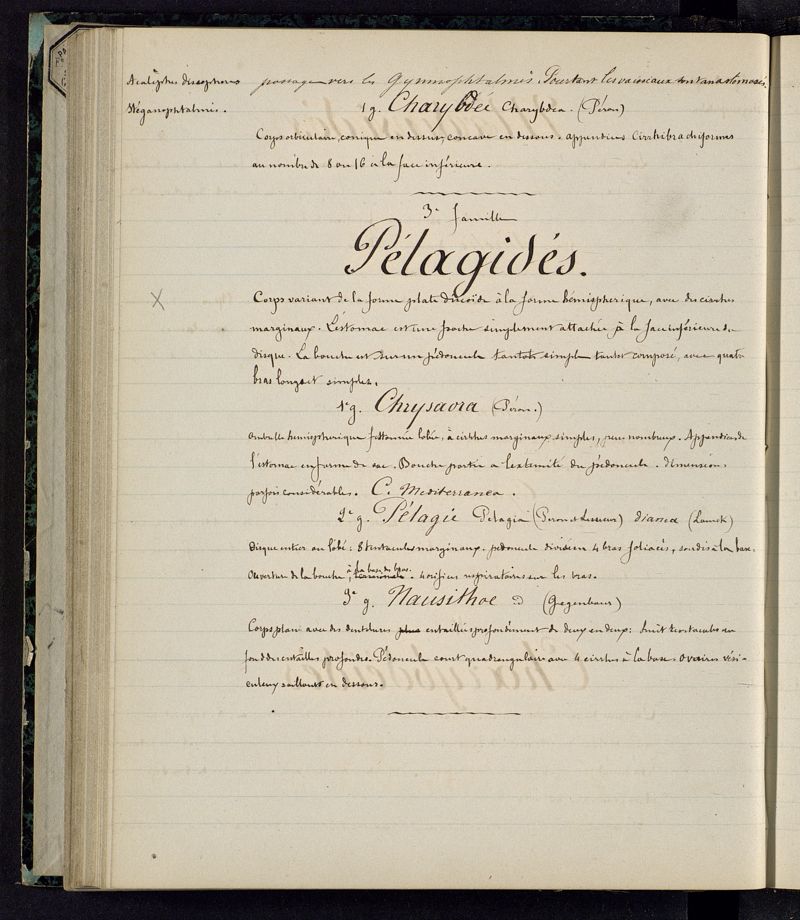 Acalèphes discophores
Stéganophtalmes.
passage vers les Gymnophtalmes. Pourtant les vaisseaux sont anastomosés.
1 g. Charybdée Charybdea. (Péron)
Corps orbiculaire, conique en dessus, concave en dessous. appendices Cirrhibrachiformes
au nombre de 8 ou 16 à la face inférieure.
3e famille
Pélagidés.
Corps variant de la forme plate discoïde à la forme hémispherique, avec des cirrhes
marginaux. L'estomac est une poche simplement attachée à la face inférieure du
disque. La bouche est sur un pédoncule tantôt simple tantôt composé, avec quatre
bras longs et simples.
1e g. Chrysaora (Péron.)
ombrelle hemispherique festonnée lobée, à cirrhes marginaux simples, peu nombreux. Appendices de
l'estomac en forme de sac. Bouche portée à l'extremité du pédoncule. dimensions
parfois considérables. C. Mediterranea.
2e g. Pélagie Pelagia (Peron et Lesueur) dianea (Lamck)
Disque entier ou lobé; 8 tentacules marginaux. pédoncule divisé en 4 bras foliacés, soudés à la base.
Ouverture de la bouche à la base des bras. 4 orifices respiratoires sur les bras.
3e g. Nausithoe (Gegenbaur)
Corps plan avec des dentelures plus entaillées profondément de deux en deux; huit tentacules au
fond des entailles profondes. Pédoncule court quadrangulaire avec 4 cirrhes à la base. Ovaires vési-
culeux saillants en dessous.